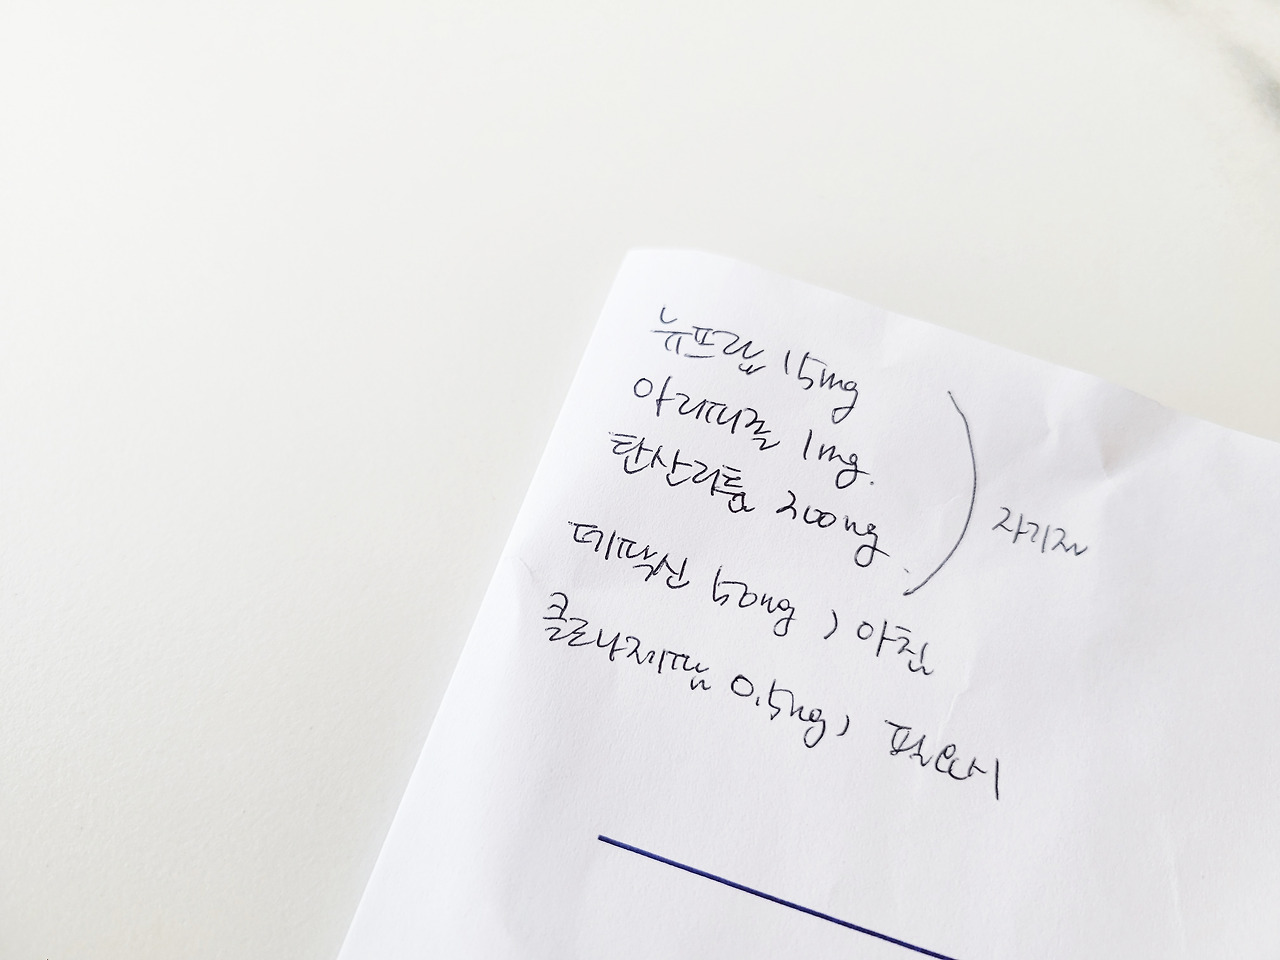 뉴프람 15mg
아리피졸 1mg.
탄산리튬 200mg
자기전
데팍신 50mg ) 아침
클로나제팜 0.5mg ) 필요시